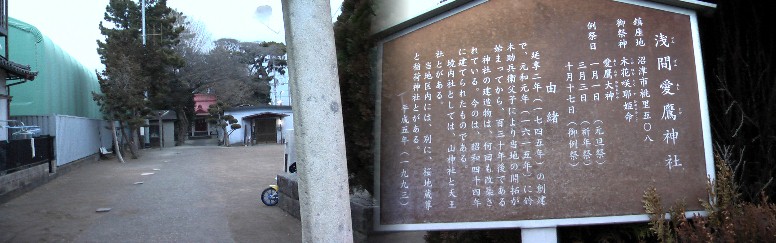 浅間愛鷹神社
鎮座地 沼津市桃里五〇八
御祭神 木花咲耶姫命
愛鷹大神
例祭日 一月一日 (元旦祭)
三月三日 (祈年祭)
十月十七日 (御例祭)
由緒
延享二年(一七四五年)の創建
で、元和元年(一六一五年)に鈴
木助兵衛父子により当地の開拓が
始まってから、百三十年後である
神社の建造物は、何回も改築さ
れている。今のは、昭和四十四年
に建てられたものである。
境内社としては、山神社と天王
社とがある。
当地区内には、別に、桜地蔵尊
と稲荷神社とがある。
平成五年(一九九三)